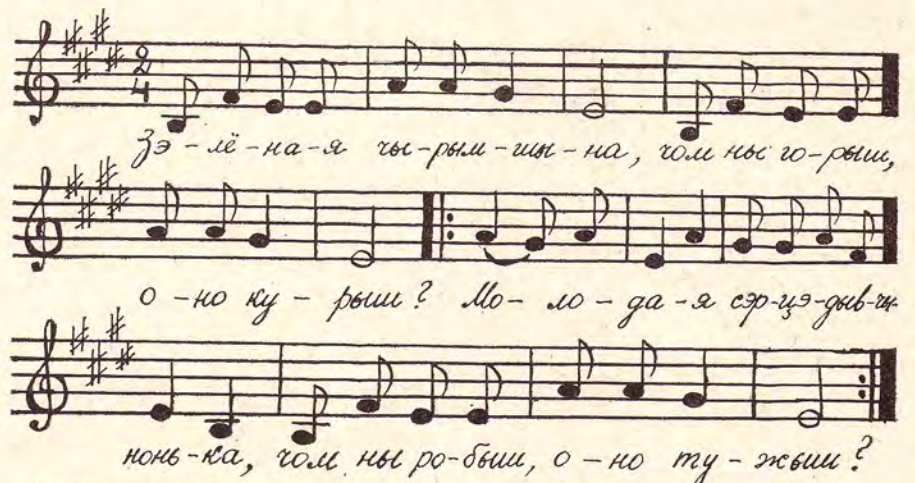 2
4
Зэ-лё-на-я чы-рым-шы-на, чом ны го-рыш,
о-но ку-рыш? Мо-ло-да-я сэр-цэ-дыв-чы-
нонь-ка, чом ны ро-быш, о-но ту-жыш?